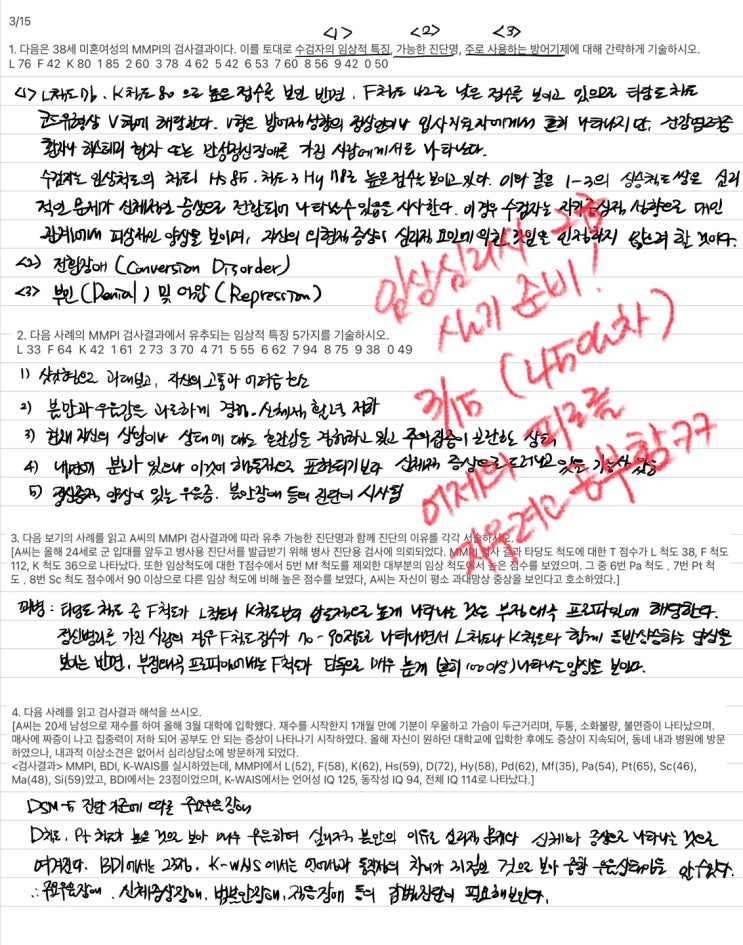 3/15
<1> <2> <3>
1. 다음은 38세 미혼여성의 MMPI의 검사결과이다. 이를 토대로 수검자의 임상적 특징, 가능한 진단명, 주로 사용하는 방어기제에 대해 간략하게 기술하시오.
L 76 F 42 K 80 1 85 2 60 3 78 4 62 5 42 6 53 7 60 8 56 9 42 0 50
<1> L척도 76, K척도 80 으로 높은 점수를 보인 반면, F척도 42로 낮은 점수를 보이고 있으므로 타당도 척도
코드유형상 V형에 해당한다. V형은 방어적 성향의 정상인이나 입사지원자에게서 흔히 나타나지만, 건강염려증
환자나 히스테리 환자 또는 반성정신장애를 가진 사람에게서도 나타난다.
수검자는 임상척도의 척도1 Hs 85, 척도3 Hy 78로 높은 점수를 보이고 있다. 이와 같은 1-3의 상승척도 쌍은 심리
적인 문제가 신체적인 증상으로 전환되어 나타날 수 있음을 시사한다. 이 경우 수검자는 자기중심적 성향으로 대인
관계에서 피상적인 양상을 보이며, 자신의 외현적 증상이 심리적 요인에 의한 것임을 인정하지 않으려 할 것이다.
<2> 전환장애 (Conversion Disorder)
<3> 부인 (Denial) 및 억압 (Repression)
임상심리사 2급
실기 준비!
3/15 (45일차)
이제의 피로를
지우려고 공부함 ㅋㅋ
2. 다음 사례의 MMPI 검사결과에서 유추되는 임상적 특징 5가지를 기술하시오.
L 33 F 64 K 42 1 61 2 73 3 70 4 71 5 55 6 62 7 94 8 75 9 38 0 49
1) 상황을 과대보고, 자신의 고통과 어려움 호소
2) 불안과 우울감을 과도하게 경험, 신체적 활력 저하
3) 현재 자신의 상황이나 상태에 대해 혼란감을 경험하고 있고 주의집중이 곤란한 상황
4) 내면에 분노가 있으나 이것이 행동적으로 표현되기보다 신체적 증상으로 드러나고 있을 가능성 있음
5) 정신증적 양상이 있는 우울증, 불안장애 등의 진단이 시사됨
3. 다음 보기의 사례를 읽고 A씨의 MMPI 검사결과에 따라 유추 가능한 진단명과 함께 진단의 이유를 각각 서술하시오.
[A씨는 올해 24세로 군 입대를 앞두고 병사용 진단서를 발급받기 위해 병사 진단용 검사에 의뢰되었다. MMPI 검사 결과 타당도 척도에 대한 T 점수가 L 척도 38, F 척도
112, K 척도 36으로 나타났다. 또한 임상척도에 대한 T점수에서 5번 Mf 척도를 제외한 대부분의 임상 척도에서 높은 점수를 보였으며, 그 중 6번 Pa 척도 , 7번 Pt 척
도 , 8번 Sc 척도 점수에서 90 이상으로 다른 임상 척도에 비해 높은 점수를 보였다, A씨는 자신이 평소 과대망상 증상을 보인다고 호소하였다.]
꾀병 : 타당도 척도 중 F척도가 L척도나 K척도보다 압도적으로 높게 나타나는 것은 부정왜곡 프로파일에 해당한다.
정신병리를 가진 사람의 경우 F척도 점수가 70-90점대로 나타나면서 L척도나 K척도와 함께 동반상승하는 양상을
보이는 반면, 부정왜곡 프로파일에서는 F척도가 단독으로 매우 높게 (흔히 100 이상) 나타나는 양상을 보인다.
4. 다음 사례를 읽고 검사결과 해석을 쓰시오.
[A씨는 20세 남성으로 재수를 하여 올해 3월 대학에 입학했다. 재수를 시작한지 1개월 만에 기분이 우울하고 가슴이 두근거리며, 두통, 소화불량, 불면증이 나타났으며.
매사에 짜증이 나고 집중력이 저하 되어 공부도 안 되는 증상이 나타나기 시작하였다. 올해 자신이 원하던 대학교에 입학한 후에도 증상이 지속되어, 동네 내과 병원에 방문
하였으나, 내과적 이상소견은 없어서 심리상담소에 방문하게 되었다.
<검사결과> MMPI, BDI, K-WAIS를 실시하였는데, MMPI에서 L(52), F(58), K(62), Hs(59), D(72), Hy(58), Pd(62), Mf(35), Pa(54), Pt(65), Sc(46),
Ma(48), Si(59)였고, BDI에서는 23점이었으며, K-WAIS에서는 언어성 IQ 125, 동작성 IQ 94, 전체 IQ 114로 나타났다.]
DSM-5 진단기준에 따른 주요우울장애
D척도, Pt 척도가 높은 것으로 보아 매우 우울하며 심리적 불안의 이유로 심리적 문제가 신체의 증상으로 나타나는 것으로
여겨진다. BDI에서는 23점, K-WAIS 에서는 언어성과 동작성의 차이가 31점인 것으로 보아 중한 우울상태임을 알 수 있다.
∴ 주요우울장애, 신체증상장애, 범불안장애, 적응장애 등의 감별진단이 필요해보인다.